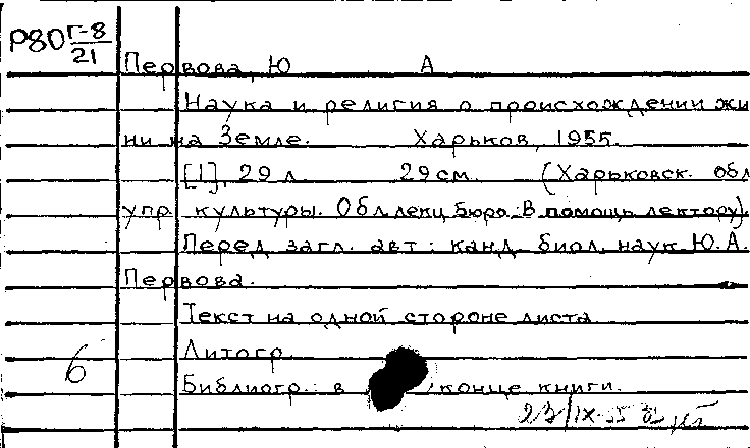 Р80 Г-8
21
Первова, Ю А
Наука и религия о происхождении жи
ни на Земле. Харьков, 1955.
[1], 29 л. 29 см. (Харьковск. обл
упр культуры. Обл лекц. бюро. В помощь лектору).
Перед загл. авт: канд. биол. наук Ю.А.
Первова.
Текст на одной стороне листа
Литогр.
6
Библиогр.: в конце книги.
23/IX-55